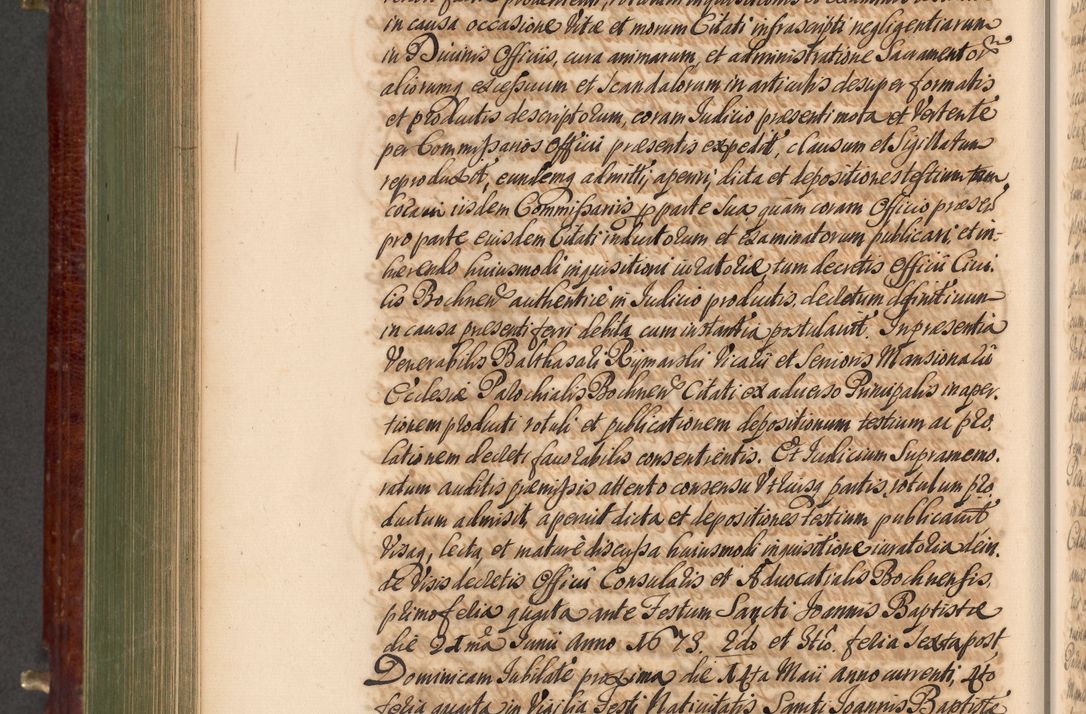 in causa occasione Vitæ et morum Citati infrascripti negligentiarum
in Divinis Officiis, cura animarum, et administratione Sacramentor̃
aliorumq excessuum et Scandalorum in articulis desuper formatis
et productis descriptorum, coram Iudicio præsenti mota et Vertente
per Commissarios Officii præsentis expedit, clausum et Sigillatum
reproduxit, eundemq admitti, aperiri, dicta et depositiones testium tam
coram iisdem Commissariis ꝑ parte sua, quàm coram Officio præsen̄
pro parte eiusdem Citati inductorum et examinatorum publicari, et in-
hærendo huiusmodi inquisitioni iuratoriæ, tum decretis Officii Civi-
lis Bochnen̄ authenticè in Iudicio productis, decretum definitivum
in causa præsenti ferri debita cum instantia postulavit. In præsentia
Venerabilis Balthasari Rymarski Vicarii et Senioris Mansionariū
Ecclesiæ Parochialis Bochnen̄ Citati ex adverso Principalis in aper-
tionem producti rotuli et publicationem depositionum testium ac pro-
lationem decreti favorabilis consentientis. Et Iudicium Supramemo-
ratum auditis præmissis attento consensu Vtriusq partis, rotulum pro-
ductum admisit, aperuit dicta et depositiones testium publicavit
Visaq, lecta, et maturè discussa huiusmodi inquisitione iuratoria dein-
de Visis decretis Officii Consularis et Advocatialis Bochnensis,
primo feria quarta ante Festum Sancti Joannis Baptistæ
die 21ma Junii Anno 1673. 2do et 3tio. feria Sexta post
Dominicam Jubilate proxima die 14ta Maii anno currenti, 4to
feria quarta in Vigilia Festi Nativitatis Sancti Joannis Baptistæ